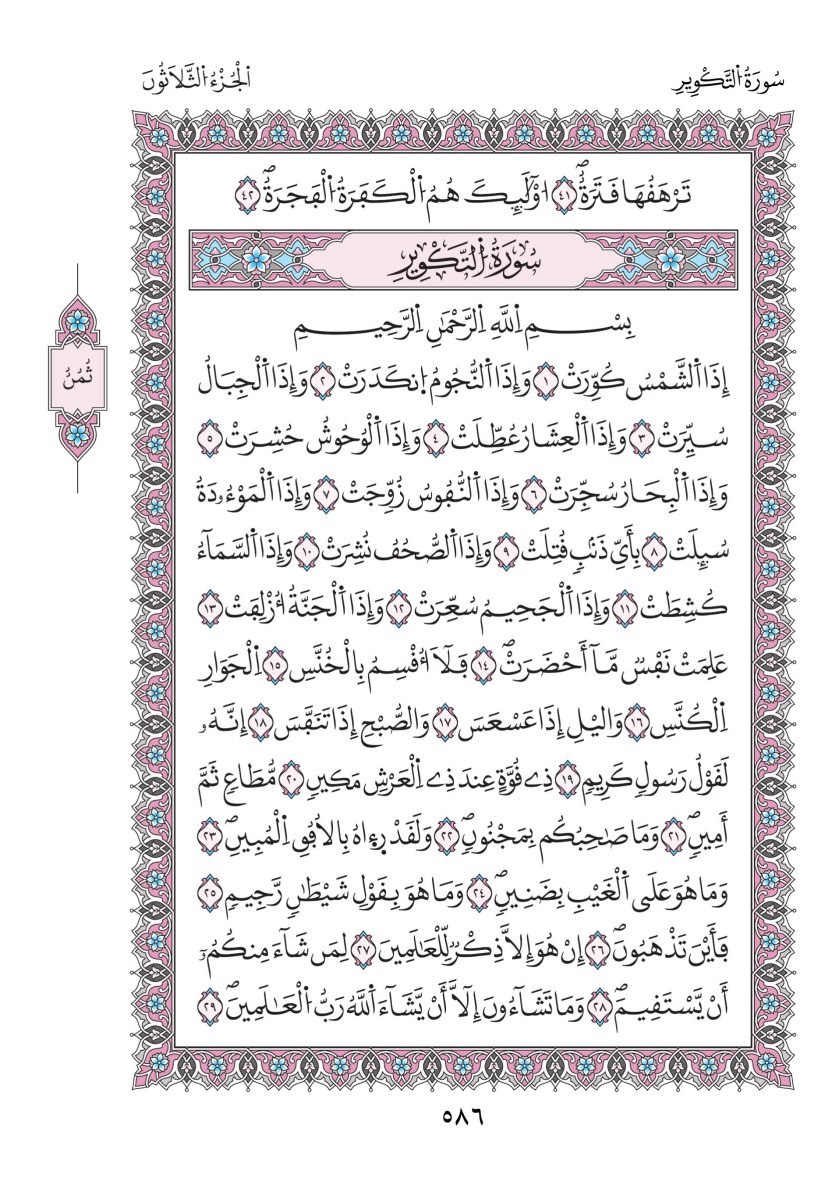 سُورَةُ اُ۬لتَّكْوِيرِ
اَ۬لْجُزْءُ اُ۬لثَّلَاثُونَ
تَرْهَقُهَا قَتَرَةٌۖ ٤١ اُوْلَٰٓئِكَ هُمُ اُ۬لْكَفَرَةُ اُ۬لْفَجَرَةُۖ ٤٢
سُورَةُ اُ۬لتَّكْوِيرِ
بِسْمِ اِ۬للَّهِ اِ۬لرَّحْمَٰنِ اِ۬لرَّحِيمِ
إِذَا اَ۬لشَّمْسُ كُوِّرَتْ ١ وَإِذَا اَ۬لنُّجُومُ اُ۪نكَدَرَتْ ٢ وَإِذَا اَ۬لْجِبَالُ
ثُمُنُ
سُيِّرَتْ ٣ وَإِذَا اَ۬لْعِشَارُ عُطِّلَتْ ٤ وَإِذَا اَ۬لْوُحُوشُ حُشِرَتْ ٥
وَإِذَا اَ۬لْبِحَارُ سُجِّرَتْ ٦ وَإِذَا اَ۬لنُّفُوسُ زُوِّجَتْ ٧ وَإِذَا اَ۬لْمَوْءُۥدَةُ
سُئِلَتْ ٨ بِأَيِّ ذَنۢبٖ قُتِلَتْ ٩ وَإِذَا اَ۬لصُّحُفُ نُشِرَتْ ١٠ وَإِذَا اَ۬لسَّمَآءُ
كُشِطَتْ ١١ وَإِذَا اَ۬لْجَحِيمُ سُعِّرَتْ ١٢ وَإِذَا اَ۬لْجَنَّةُ أُزْلِفَتْ ١٣
عَلِمَتْ نَفْسٞ مَّآ أَحْضَرَتْۖ ١٤ فَلَآ أُقْسِمُ بِالْخُنَّسِ ١٥ اِ۬لْجَوَارِ
اِ۬لْكُنَّسِ ١٦ وَاليْلِ إِذَا عَسْعَسَ ١٧ وَالصُّبْحِ إِذَا تَنَفَّسَ ١٨ إِنَّهُۥ
لَقَوْلُ رَسُولٖ كَرِيمٖ ١٩ ذِے قُوَّةٍ عِندَ ذِے اِ۬لْعَرْشِ مَكِينٖ ٢٠ مُّطَاعٖ ثَمَّ
أَمِينٖۖ ٢١ وَمَا صَٰحِبُكُم بِمَجْنُونٖۖ ٢٢ وَلَقَدْ رِء۪اهُ بِالُافُقِ اِ۬لْمُبِينِۖ ٢٣
وَمَا هُوَ عَلَى اَ۬لْغَيْبِ بِضَنِينٖۖ ٢٤ وَمَا هُوَ بِقَوْلِ شَيْطَٰنٖ رَّجِيمٖ ٢٥
فَأَيْنَ تَذْهَبُونَۖ ٢٦ إِنْ هُوَ إِلَّا ذِكْرٞ لِّلْعَٰلَمِينَ ٢٧ لِمَن شَآءَ مِنكُمُۥٓ
أَنْ يَّسْتَقِيمَۖ ٢٨ وَمَا تَشَآءُونَ إِلَّآ أَنْ يَّشَآءَ اَ۬للَّهُ رَبُّ اُ۬لْعَٰلَمِينَۖ ٢٩
٥٨٦